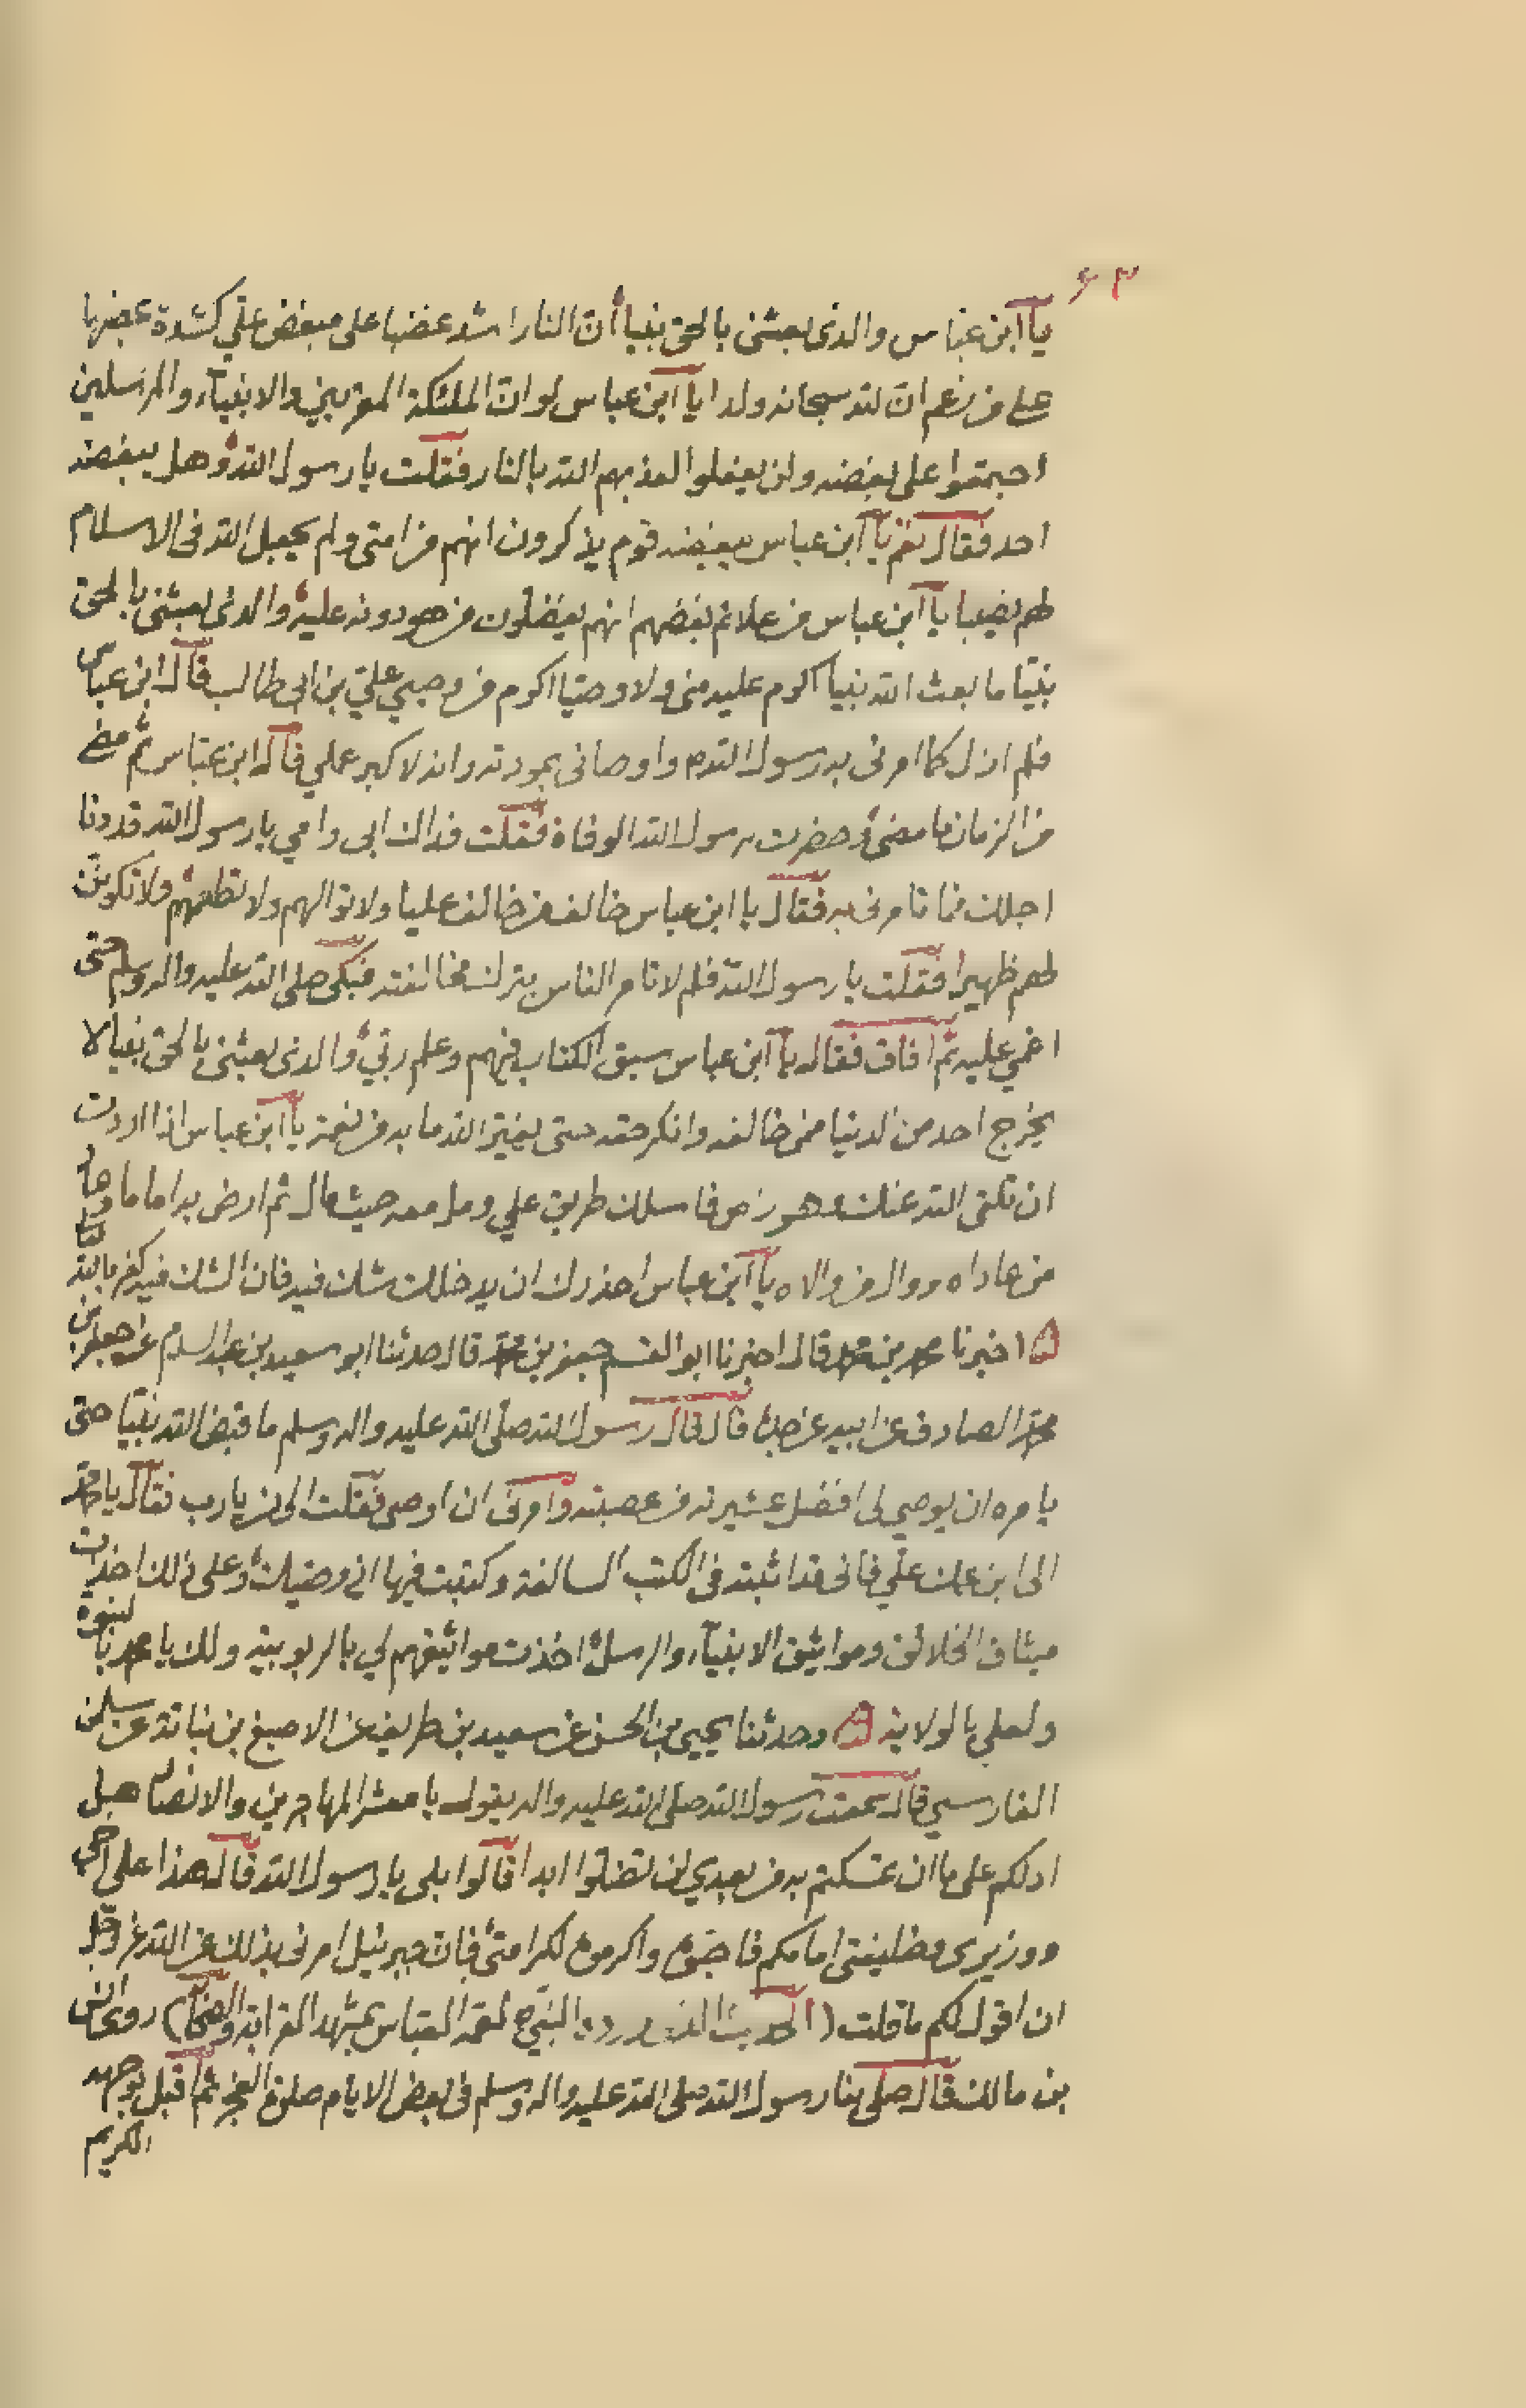 ٤٣
يا ابن عباس والذى بعثنى بالحق نبيا ان النار اشد غضبا على مبغض علي كشدة غضبها
على من زعم ان لله سبحانه ولدا يا ابن عباس لو ان الملئكة المقربين والانبيآء والمرسلين
اجتمعوا على بغضه ولن يفعلوا لعذبهم الله بالنار فقلت يا رسول الله وهل يبغضه
احد فقال نعم يا ابن عباس يبغضه قوم يذكرون انهم من امتى ولم يجعل الله فى الاسلام
لهم نصيبا يا ابن عباس من علائم بغضهم انهم يفضلون من هو دونه عليه والذى بعثنى بالحق
نبيّا ما بعث الله نبيا اكرم عليه منى ولا وصيّا اكرم من وصيي علي بن ابى طالب قال ابن عباس
فلم ازل كما امرنى به رسول الله ص واوصانى بمودته وانه لاكبر عملي قال ابن عباس ثم مضى
من الزمان ما مضى وحضرت رسول الله الوفاة فقلت فداك ابى وامي يا رسول الله قد دنا
اجلك فما تامرنى به فقال يا ابن عباس خالف من خالف عليا ولا توالهم ولا تكونن
لهم ظهيرا فقلت يا رسول الله فلم لا تامر الناس بترك مخالفته فبكى صلى الله عليه واله وسلم حتى
اغمي عليه ثم افاق فقال يا ابن عباس سبق الكتاب فيهم وعلم ربي والذى بعثنى بالحق نبيا لا
يخرج احد من الدنيا ممن خالفه وانكر حقه حتى يغير الله ما به من نعمة يا ابن عباس اذا اردت
ان تلقى الله عنك وهو راض فاسلك طريق علي ومل معه حيث مال ثم ارض به اماما وعاد
من عاداه ووال من والاه يا ابن عباس احذرك ان يدخلك شك فيه فان الشك فيه كفر بالله
اخبرنا محمد بن محمد قال اخبرنا ابو القسم جعفر بن محمد قال حدثنا ابو سعيد بن عبد السلام عن جعفر بن
محمد الصادق عن ابيه عن جده قال قال رسول الله صلى الله عليه واله وسلم ما قبض الله نبيّا حتى
يامره ان يوصي لى افضل عشيرته من عصبته وامرنى ان اوصي فقلت الى من يا رب فقال يا محمد
الى ابن عمك علي فانى قد اثبته فى الكتب السالفة وكتبت فيها انه وصيك وعلى ذلك اخذت
ميثاق الخلائق ومواثيق الانبيآء والرسل اخذت مواثيقهم لي بالربوبية ولك يا محمد بالنبوة
ولعلي بالولاية وحدثنا يحيى بن الحسن عن سعيد بن طريف عن الاصبغ بن نباتة عن سلمن
الفارسي قال سمعت رسول الله صلى الله عليه واله يقول يا معشر المهاجرين والانصار هل
ادلكم على ما ان تمسكتم به من بعدي لن تضلوا ابدا قالوا بلى يا رسول الله قال هذا علي اخى
ووزيرى وخليفتى امامكم فاحبوه واكرموه لكرامتى فان جبرئيل امرنى بذلك عن الله عز وجل
ان اقول لكم ما قلت (الحديث النبي لعمه العباس بمشهد القرابة والصحآبة) روى انس
بن مالك قال صلى بنا رسول الله صلى الله عليه واله وسلم فى بعض الايام صلوة الفجر ثم اقبل بوجهه
الكريم